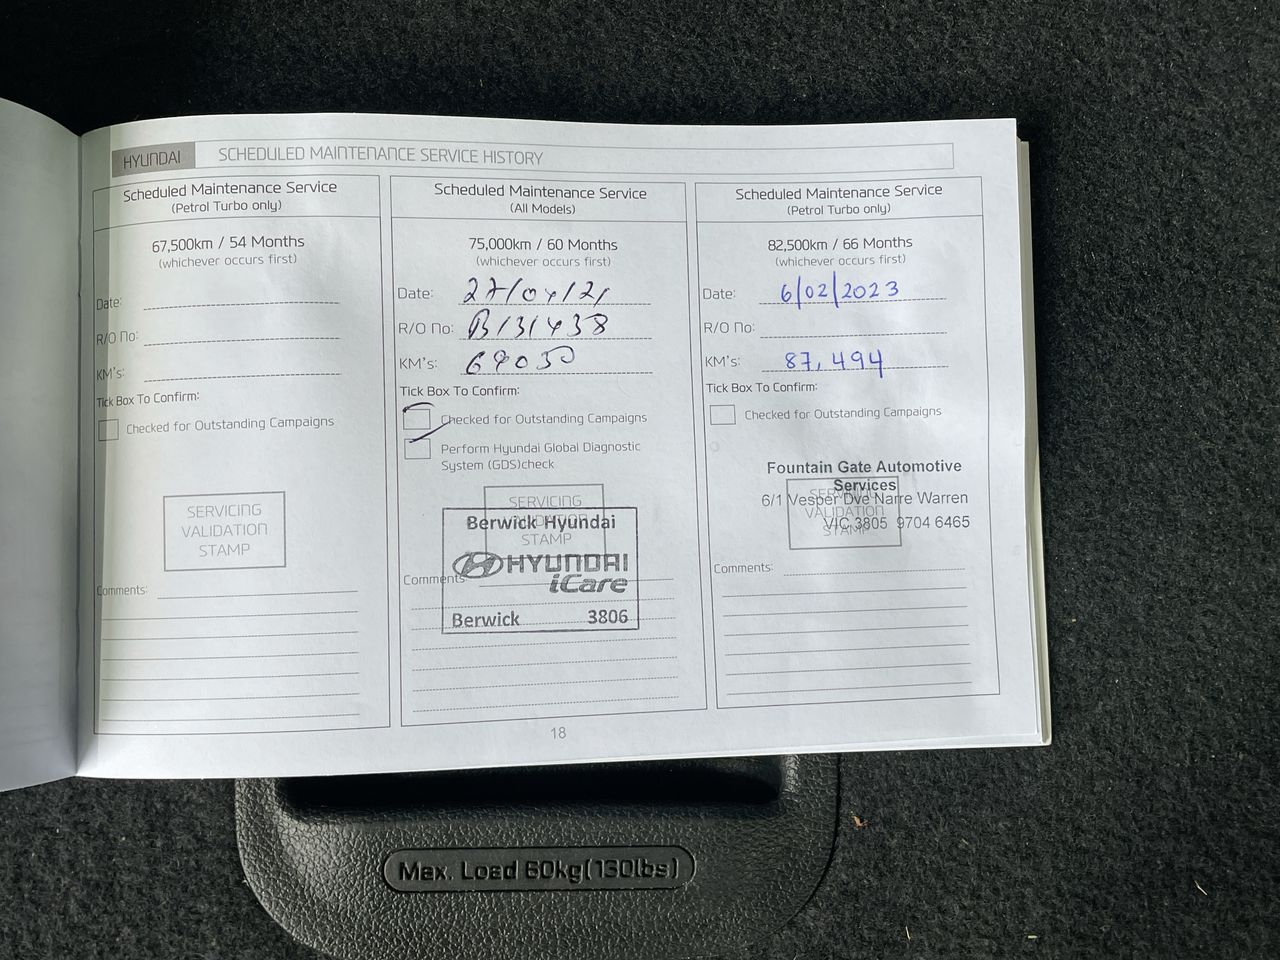 HYUNDAI SCHEDULED MAINTENANCE SERVICE HISTORY
Scheduled Maintenance Service
(Petrol Turbo only)
67,500km / 54 Months
(whichever occurs first)
Date:
R/O No:
KM's:
Tick Box To Confirm:
Checked for Outstanding Campaigns
SERVICING
VALIDATION
STAMP
Comments:
Scheduled Maintenance Service
(All Models)
75,000km / 60 Months
(whichever occurs first)
Date: 27/04/21
R/O No: B131438
KM's: 69030
Tick Box To Confirm:
Checked for Outstanding Campaigns
Perform Hyundai Global Diagnostic
System (GDS)check
SERVICING
VALIDATION
STAMP
Berwick Hyundai
HYUNDAI
iCare
Berwick 3806
Comments
Scheduled Maintenance Service
(Petrol Turbo only)
82,500km / 66 Months
(whichever occurs first)
Date: 6/02/2023
R/O No:
KM's: 87,494
Tick Box To Confirm:
Checked for Outstanding Campaigns
Fountain Gate Automotive
Services
6/1 Vesper Dve Narre Warren
VIC 3805 9704 6465
SERVICING
VALIDATION
STAMP
Comments:
18
Max. Load 60kg(130lbs)